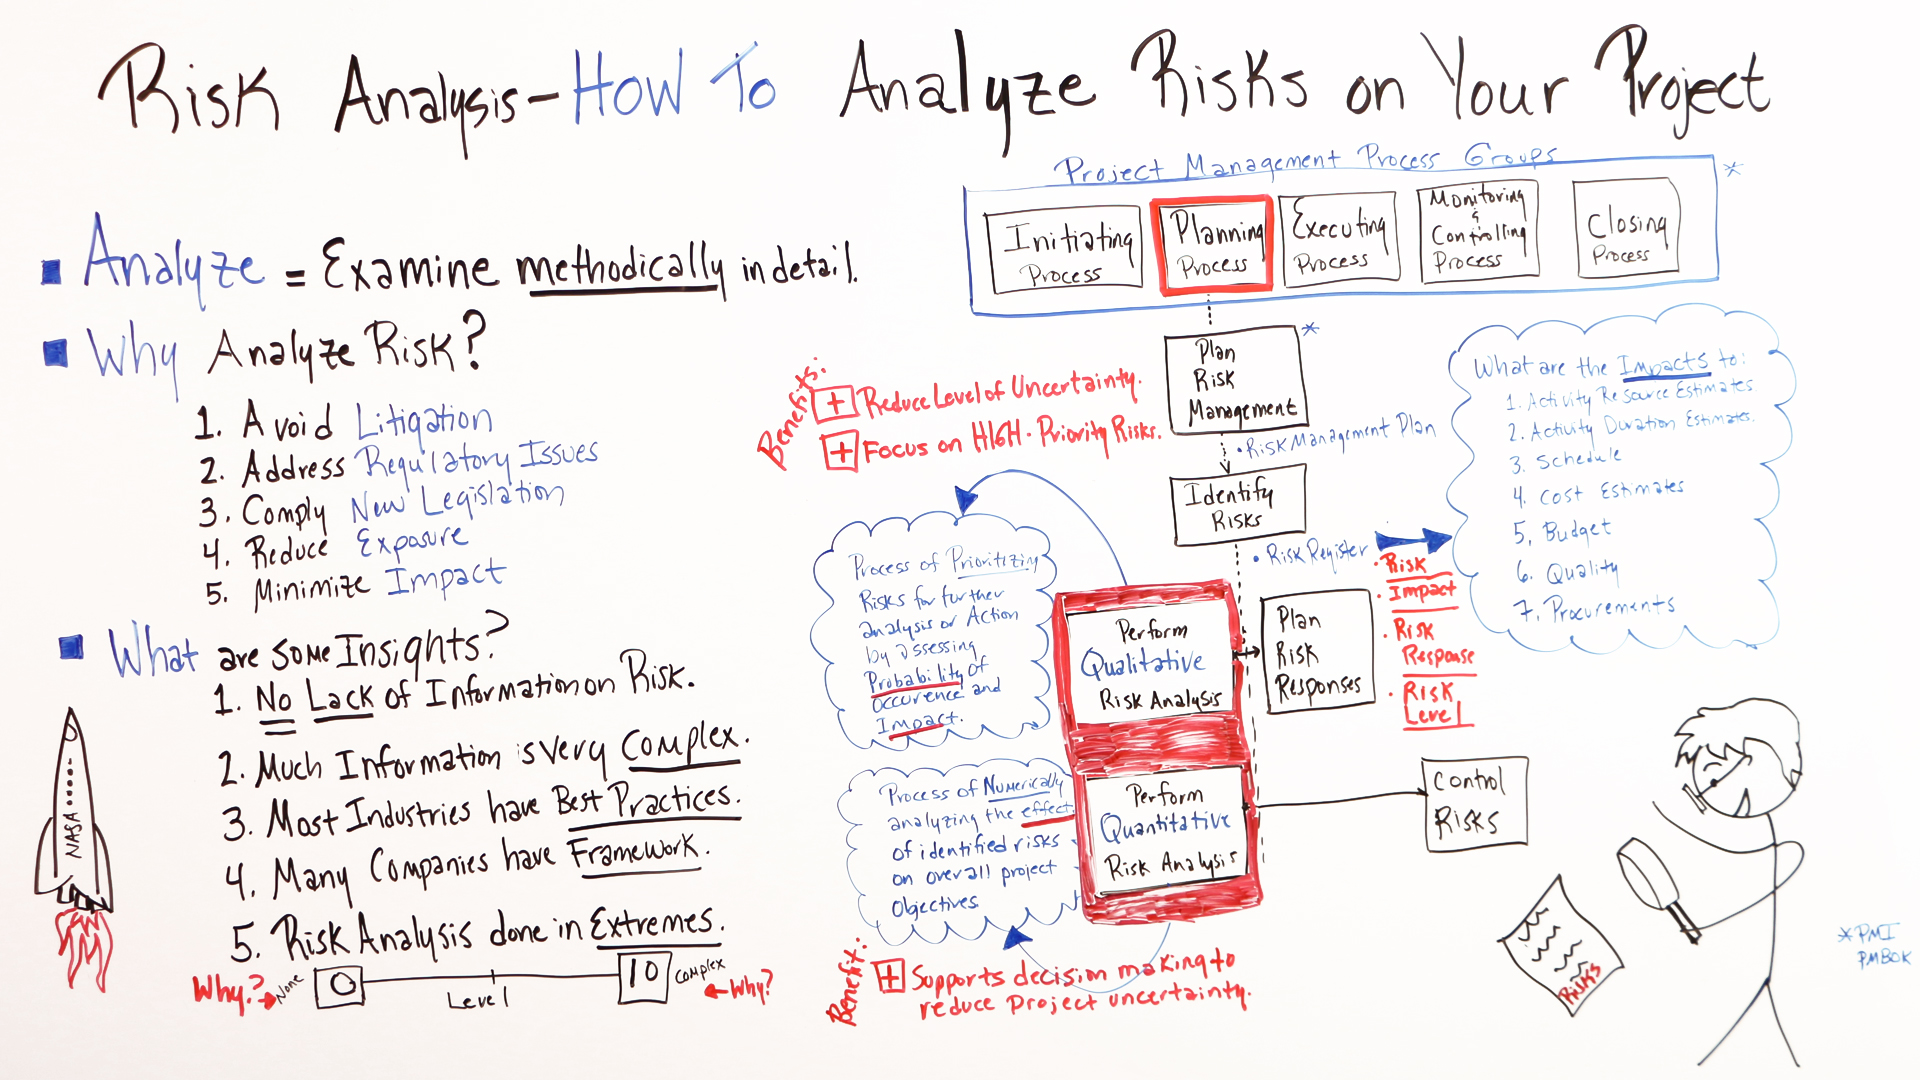 Risk Analysis - How To Analyze Risks on Your Project
Analyze = Examine methodically in detail.
Why Analyze Risk?
1. Avoid Litigation
2. Address Regulatory Issues
3. Comply New Legislation
4. Reduce Exposure
5. Minimize Impact
What are some Insights?
1. No Lack of Information on Risk.
2. Much Information is very Complex.
3. Most Industries have Best Practices.
4. Many Companies have Framework.
5. Risk Analysis done in Extremes.
Why?
None
0
Level
10
Complex
Why?
NASA
Project Management Process Groups
*
Initiating
Process
Planning
Process
Executing
Process
Monitoring
&
Controlling
Process
Closing
Process
Plan
Risk
Management
*
• Risk Management Plan
Identify
Risks
• Risk Register
Benefits:
+ Reduce Level of Uncertainty.
+ Focus on HIGH-Priority Risks.
Process of Prioritizing
Risks for further
analysis or Action
by assessing
Probability of
occurence and
Impact.
Perform
Qualitative
Risk Analysis
Process of Numerically
analyzing the effect
of identified risks
on overall project
Objectives
Perform
Quantitative
Risk Analysis
Benefit:
+ Supports decision making to
reduce Project uncertainty.
Plan
Risk
Responses
• Risk
• Impact
• Risk
Response
• Risk
Level
Control
Risks
What are the Impacts to:
1. Activity Resource Estimates
2. Activity Duration Estimates.
3. Schedule
4. Cost Estimates
5. Budget
6. Quality
7. Procurements
Risks
* PMI
PMBOK